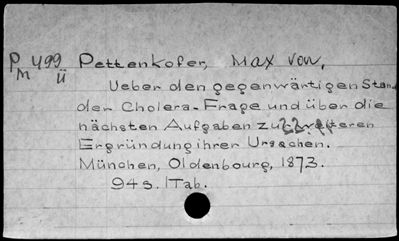 P 499 Pettenkofer, Max von.
M ü
Ueber den gegenwärtigen Stand
der Cholera-Frage und über die
nächsten Aufgaben zu weiteren
Ergründung ihrer Ursachen.
München, Oldenbourg, 1873.
94 s. 1 Tab.